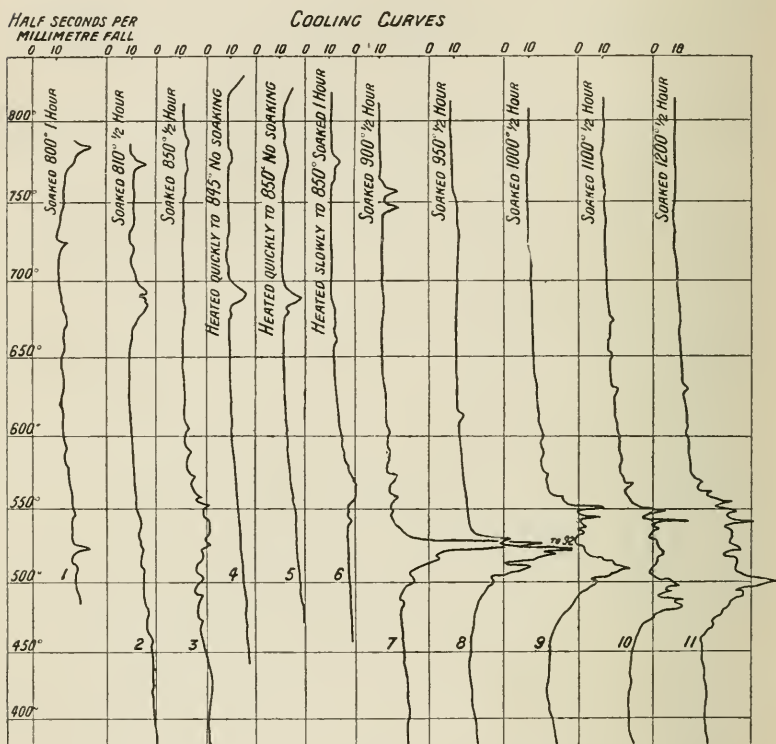 HALF SECONDS PER
MILLIMETRE FALL
COOLING CURVES
0 10 0 10 0 10 0 10 0 10 0 10 0 10 0 10 0 10 0 10 0 10
SOAKED 800° 1 HOUR
SOAKED 810° ½ HOUR
SOAKED 850° ½ HOUR
HEATED QUICKLY TO 845° NO SOAKING
HEATED QUICKLY TO 850° NO SOAKING
HEATED SLOWLY TO 850° SOAKED 1 HOUR
SOAKED 900° ½ HOUR
SOAKED 950° ½ HOUR
SOAKED 1000° ½ HOUR
SOAKED 1100° ½ HOUR
SOAKED 1200° ½ HOUR
800°
750°
700°
650°
600°
550°
TO 92
500°
1
4
5
6
450°
2
3
7
8
9
10
11
400°